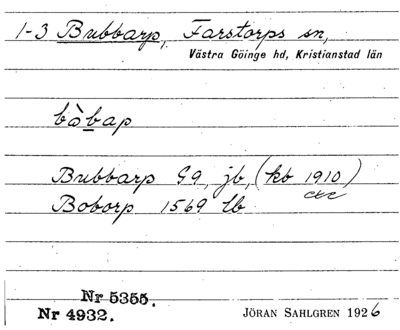 1-3 Bubbarp, Farstorps sn,
Västra Göinge hd, Kristianstad län
bòbap
Bubbarp G9, jb, (kb 1910)
Boborp 1569 lb
Nr 5355.
Nr 4932.
JÖRAN SAHLGREN 1926